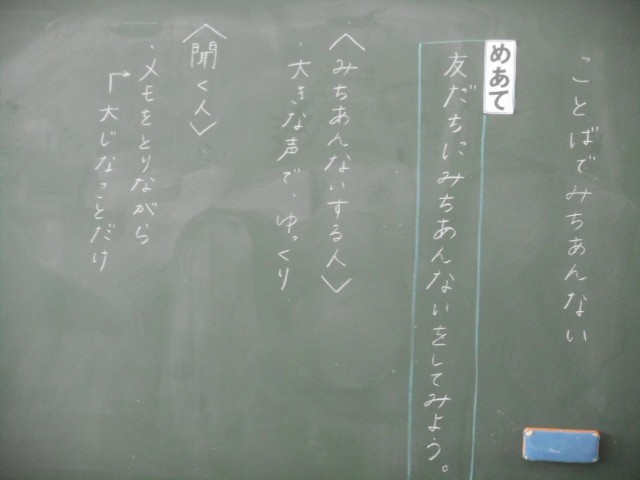 ことばでみちあんない
めあて
友だちにみちあんないをしてみよう。
〈みちあんないする人〉
・大きな声で、ゆっくり
〈聞く人〉
・メモをとりながら
大じなことだけ